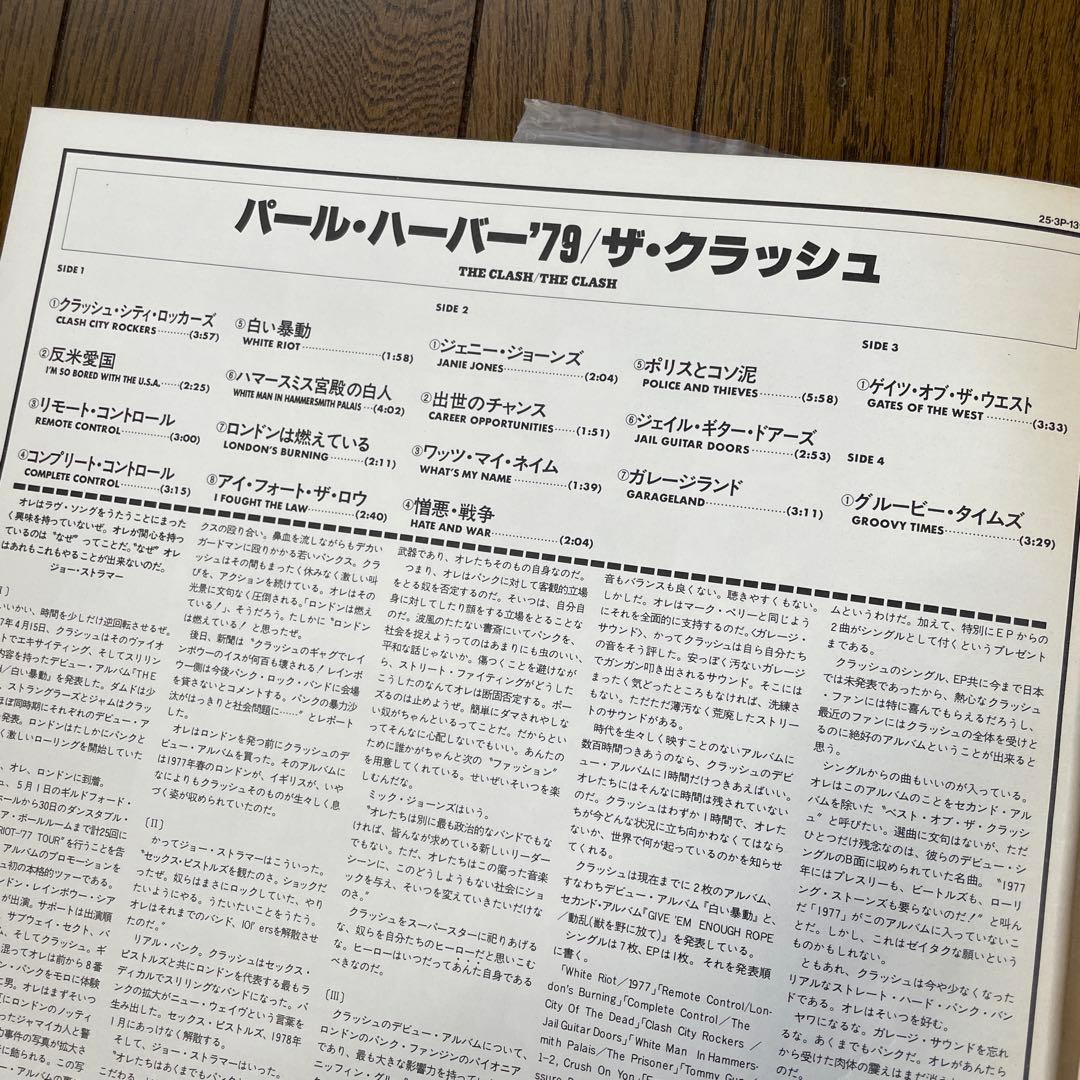 25·3P-13
パール・ハーバー'79/ザ・クラッシュ
THE CLASH/THE CLASH
SIDE 1
①クラッシュ・シティ・ロッカーズ
CLASH CITY ROCKERS··········(3:57)
②反米愛国
I'M SO BORED WITH THE U.S.A.·····(2:25)
③リモート・コントロール
REMOTE CONTROL·············(3:00)
④コンプリート・コントロール
COMPLETE CONTROL···········(3:15)
⑤白い暴動
WHITE RIOT····················(1:58)
⑥ハマースミス宮殿の白人
WHITE MAN IN HAMMERSMITH PALAIS···(4:02)
⑦ロンドンは燃えている
LONDON'S BURNING··········(2:11)
⑧アイ・フォート・ザ・ロウ
I FOUGHT THE LAW············(2:40)
SIDE 2
①ジェニー・ジョーンズ
JANIE JONES···················(2:04)
②出世のチャンス
CAREER OPPORTUNITIES······(1:51)
③ワッツ・マイ・ネイム
WHAT'S MY NAME·············(1:39)
④憎悪・戦争
HATE AND WAR················(2:04)
⑤ポリスとコソ泥
POLICE AND THIEVES··········(5:58)
⑥ジェイル・ギター・ドアーズ
JAIL GUITAR DOORS···········(2:53)
⑦ガレージランド
GARAGELAND··················(3:11)
SIDE 3
①ゲイツ・オブ・ザ・ウエスト
GATES OF THE WEST···········(3:33)
SIDE 4
①グルービー・タイムズ
GROOVY TIMES················(3:29)
オレはラヴ・ソングをうたうことにまった
く興味を持っていないぜ。オレが関心を持っ
ているのは〝なぜ〟ってことだ。〝なぜ〟オレ
はあれもこれもやることが出来ないのだ。
ジョー・ストラマー
いいかい、時間を少しだけ逆回転させるぜ。
7年4月15日、クラッシュはそのヴァイオ
トでエキサイティング、そしてスリリン
内容を持ったデビュー・アルバム「THE
/白い暴動」を発表した。ダムドは少
、ストラングラーズとジャムはクラッ
ほぼ同時期にそれぞれのデビュー・ア
発表。ロンドンはたしかにパンクと
く激しいローリングを開始していた
、オレ、ロンドンに到着。
ュ、5月1日のギルドフォード・
ホールから30日のダンスタブル・
ア・ボールルームまで計25回に
RIOT-'77 TOUR”を行うことを告
アルバムのプロモーションを
ュ初の本格的ツアーである。
ンドン・レインボウ・シア
が出演。サポートは出演順
、サブウェイ・セクト、バ
ム、そしてクラッシュ。ギ
混ってオレは前から8番
ン・パンクをモロに体験
に男。オレはまずそいつ
にロンドンのノッティ
ったジャマイカ人と警
の事件の写真が拡大さ
に飾られる。この写
クスの殴り合い。鼻血を流しながらもデカい
ガードマンに殴りかかる若いパンクス。クラ
ッシュはその間もまったく休みなく激しい叫
びを、アクションを続けている。オレはその
光景に文句なく圧倒される。「ロンドンは燃え
ている！」、そうだろう。たしかに〝ロンドン
は燃えている！〟と思ったぜ。
後日、新聞は〝クラッシュのギャグでレイ
ンボウのイスが何百も壊される！レインボ
ウー側は今後パンク・ロック・バンドに会場
を貸さないとコメントする。パンクの暴力沙
汰がはっきりと社会問題に……〟とレポート
した。
オレはロンドンを発つ前にクラッシュのデ
ビュー・アルバムを買った。そのアルバムに
は1977年春のロンドンが、イギリスが、いや
なによりもクラッシュそのものが生々しく息
づく姿が収められていたのだ。
[II]
かってジョー・ストラマーはこういった。
〝セックス・ピストルズを観たのさ。ショックだ
ったぜ。奴らはまさにロックしていた、やり
たいようにやる。うたいたいことをうたう。
オレはそれまでのバンド、101' ersを解散させ
たのだ。〟
リアル・パンク。クラッシュはセックス・
ピストルズと共にロンドンを代表する最もラ
ディカルでスリリングなバンドになった。パ
ンクの拡大がニュー・ウェイヴという言葉を
生み出した。セックス・ピストルズ、1978年
1月にあっけなく解散する。
そして、ジョー・ストラマーはいった。
〝オレたちはあくまでもパンク
武器であり、オレたちそのもの自身なのだ。
つまり、オレはパンクに対して客観的立場
をとる奴を否定するのだ。そいつは、自分自
身に対してしたり顔をする立場をとることな
のだ。波風のたたない書斎にいてパンクを、
社会を捉えようってのはあまりにも虫のいい、
平和な話じゃないか。傷つくことを避けなが
ら、ストリート・ファイティングがどうした
こうしたのなんてオレは断固否定する。ポー
ズるのは止めようぜ。簡単にダマされやしな
い奴がちゃんといるってことだ。だからとい
ってそんなに心配しないでもいい。あんたの
ために誰かがちゃんと次の〝ファッション〟
を用意してくれている。せいぜいそいつを楽
しむんだな。
ミック・ジョーンズはいう。
〝オレたちは別に最も政治的なバンドでもな
ければ、皆んなが求めている新しいリーダー
でもない。ただ、オレたちはこの腐った音楽
シーンに、このどうしようもない社会にショ
ックを与え、そいつを変えていきたいだけな
のさ。〟
クラッシュをスーパースターに祀りあげる
な、奴らを自分たちのヒーローだと思いこむ
な。ヒーローはいつだってあんた自身である
べきなのだ。
[III]
クラッシュのデビュー・アルバムについて、
ロンドンのパンク・ファンジンのパイオニア
であり、最も大きな影響力を持って
音もバランスも良くない。聴きやすくもない。
しかしだ。オレはマーク・ペリーと同じよう
にそれを全面的に支持するのだ。〈ガレージ・
サウンド〉、かってクラッシュは自ら自分たち
の音をそう評した。安っぽく汚ないガレージ
でガンガン叩き出されるサウンド。そこには
まったく気どったところもなければ、洗練さ
もない。ただただ薄汚なく荒廃したストリー
トのサウンドがある。
時代を生々しく映すことのないアルバムに
数百時間つきあうのなら、クラッシュのデビ
ュー・アルバムに1時間だけつきあえばいい。
オレたちにはそんなに時間は残されていない
のだ。クラッシュはわずか1時間で、オレた
ちが今どんな状況に立ち向かわなくてはなら
ないか、世界で何が起っているのかを知らせ
てくれる。
クラッシュは現在までに2枚のアルバム、
すなわちデビュー・アルバム『白い暴動』と、
セカンド・アルバム『GIVE 'EM ENOUGH ROPE
/動乱(獣を野に放て)』を発表している。
シングルは7枚、EPは1枚。それを発表順
に書く。
「White Riot／1977」「Remote Control/Lon-
don's Burning」「Complete Control／The
City Of The Dead」「Clash City Rockers／
Jail Guitar Doors」「White Man In Hammers-
mith Palais／The Prisoner」「Tommy Gu
1-2, Crush On You」
ムというわけだ。加えて、特別にEPからの
2曲がシングルとして付くというプレゼント
まである。
クラッシュのシングル、EP共に今まで日本
では未発表であったから、熱心なクラッシュ
・ファンには特に喜んでもらえるだろうし、
最近のファンにはクラッシュの全体を受けと
るのに絶好のアルバムということが出来ると
思う。
シングルからの曲もいいのが入っている。
オレはこのアルバムのことをセカンド・アル
バムを除いた〝ベスト・オブ・ザ・クラッシ
ュ〟と呼びたい。選曲に文句はないが、ただ
ひとつだけ残念なのは、彼らのデビュー・シ
ングルのB面に収められていた名曲。〝1977
年にはプレスリーも、ビートルズも、ローリ
ング・ストーンズも要らないのだ！〟と叫ん
だ「1977」がこのアルバムに入っていないこ
とだ。しかし、これはゼイタクな願いという
ものかもしれない。
ともあれ、クラッシュは今や少なくなった
リアルなストレート・ハード・パンク・バン
ドである。オレはそいつを好む。
ヤワになるな。ガレージ・サウンドを忘れ
るな。あくまでもパンクだ。オレがあんたら
から受けた肉体の震えはまだ